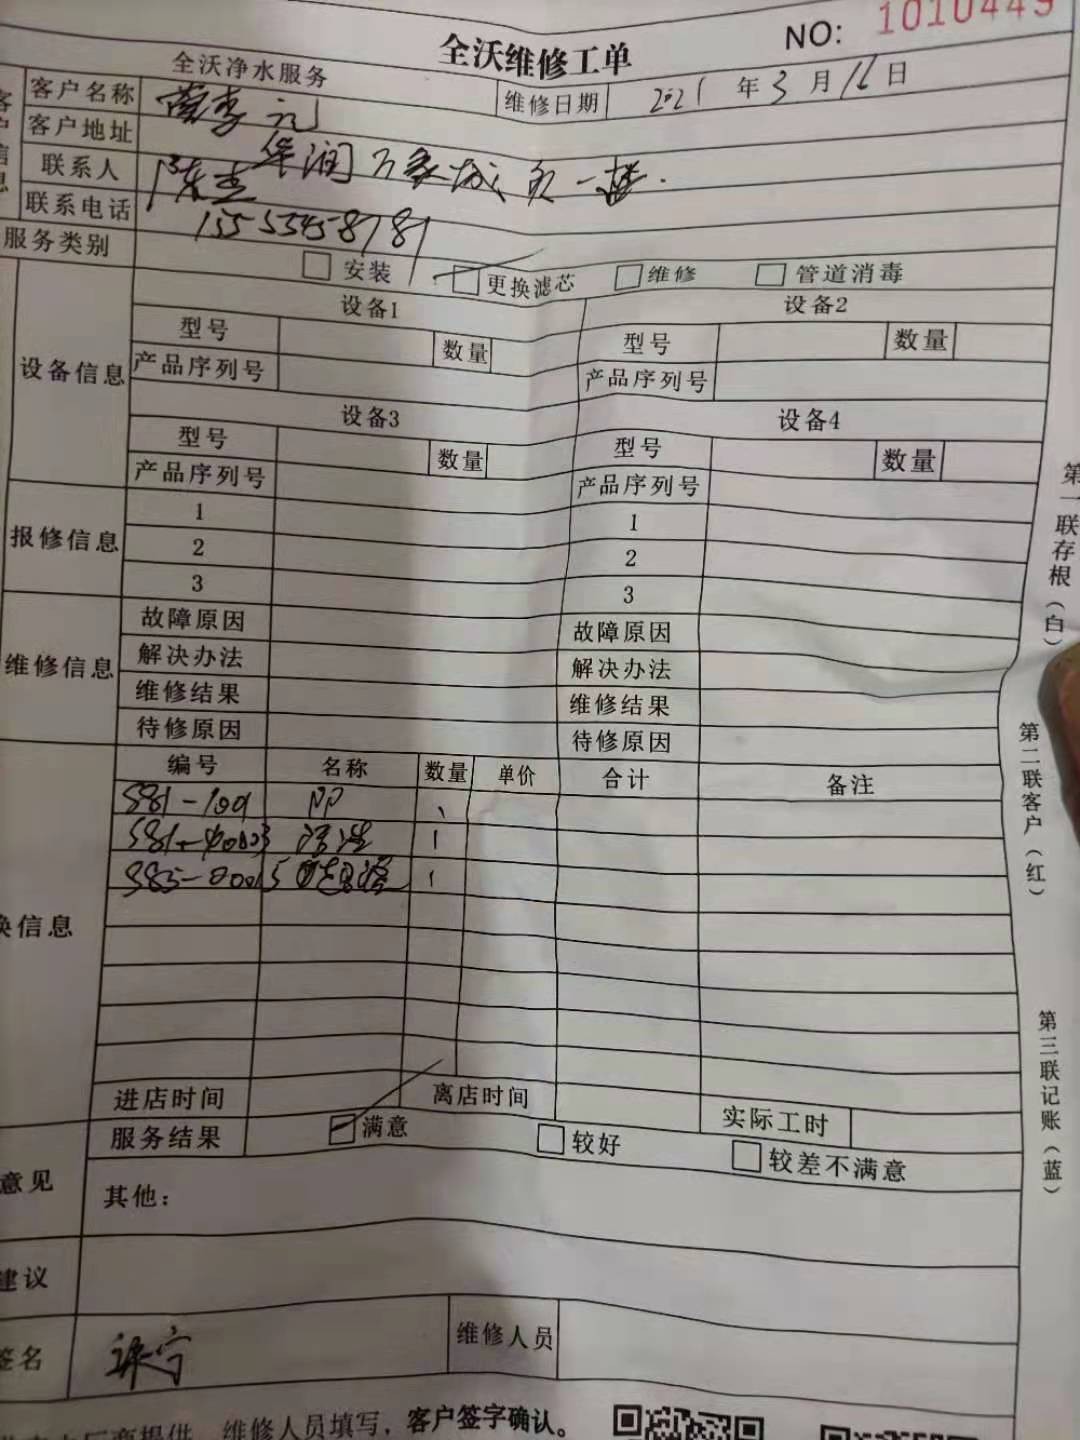 全沃维修工单
NO: 1010449
全沃净水服务
维修日期 2021 年 3 月 16 日
客户名称
客户地址 华润万家城负一楼.
联系人
联系电话
服务类别
安装 更换滤芯 维修 管道消毒
设备信息
设备1 设备2
型号 数量 型号 数量
产品序列号 产品序列号
设备3 设备4
型号 数量 型号 数量
产品序列号 产品序列号
报修信息
1 1
2 2
3 3
维修信息
故障原因 故障原因
解决办法 解决办法
维修结果 维修结果
待修原因 待修原因
换信息
编号 名称 数量 单价 合计 备注
PP
1
1
进店时间 离店时间 实际工时
服务结果 满意 较好 较差不满意
意见
其他:
建议
签名 维修人员
提供、维修人员填写,客户签字确认。
第一联存根(白)
第二联客户(红)
第三联记账(蓝)